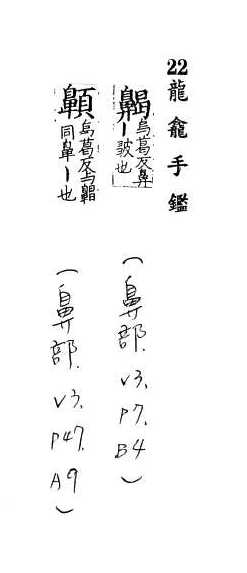 22龍龕手鑑
齃烏葛反鼻
ー皷也
(鼻部. V3. P7. B4)
烏葛反与齃
同鼻ー也
(鼻部. V3. P47. A9)